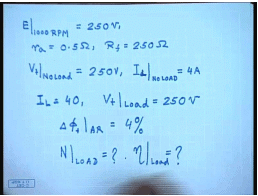 E|1000 RPM = 250V,
ra = 0.5Ω, Rf = 250Ω
Vt|NO LOAD = 250V, IL|NO LOAD = 4A
IL = 40, Vt|Load = 250V
Δϕf|AR = 4%
N|LOAD = ? . η|Load = ?